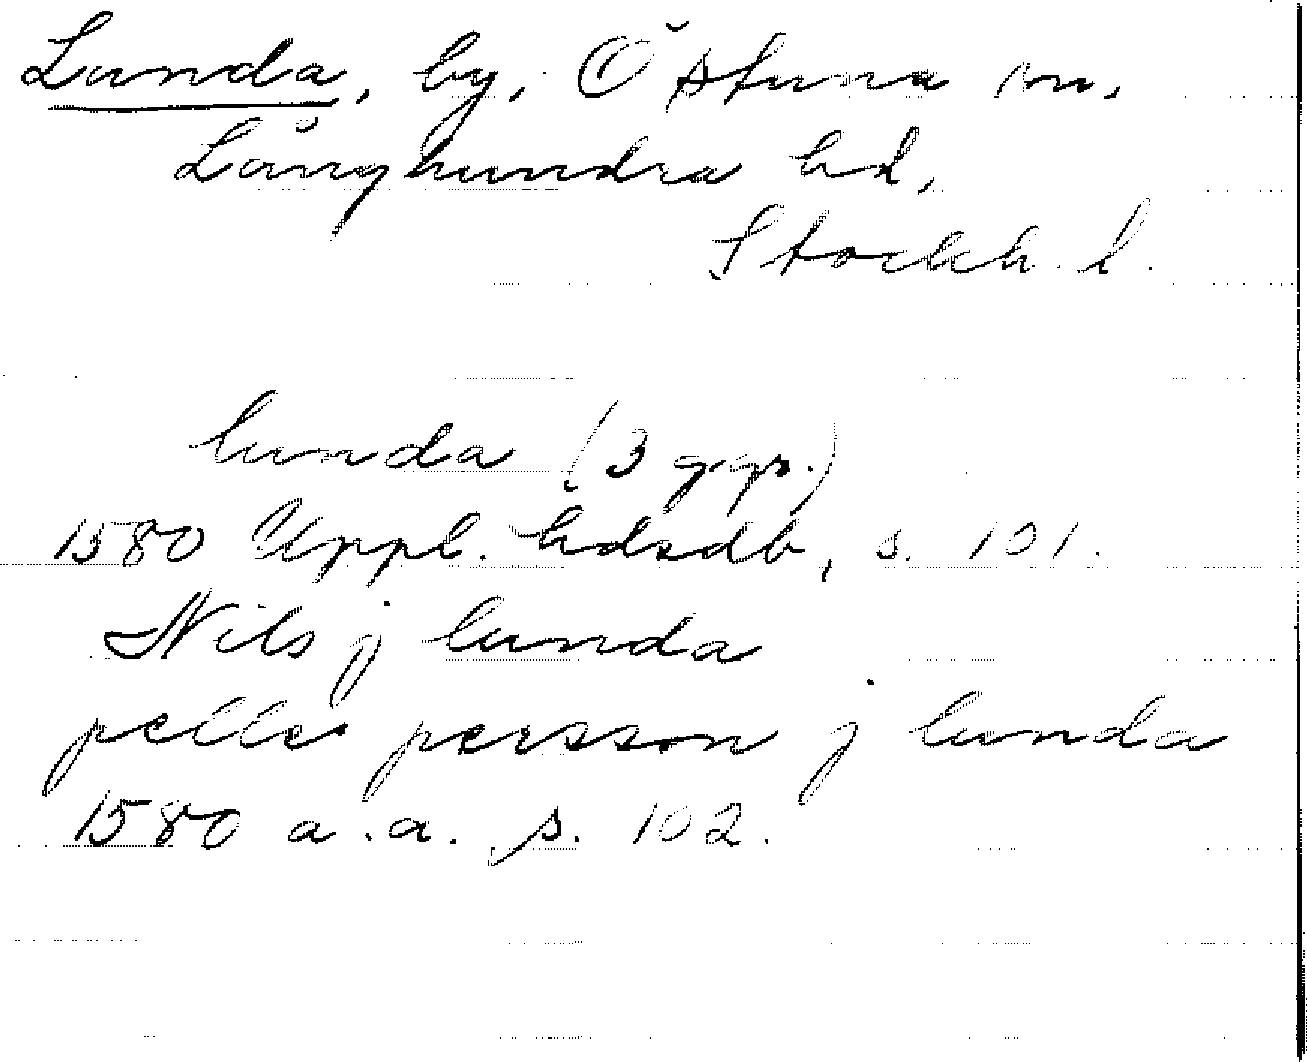 Lunda, by, Östuna sn,
Långhundra hd,
Stockh. l.
lunda (3 ggr.)
1580 Uppl. hdsdb, s. 101.
Nils j lunda
pelle persson j lunda
1580 a.a. s. 102.